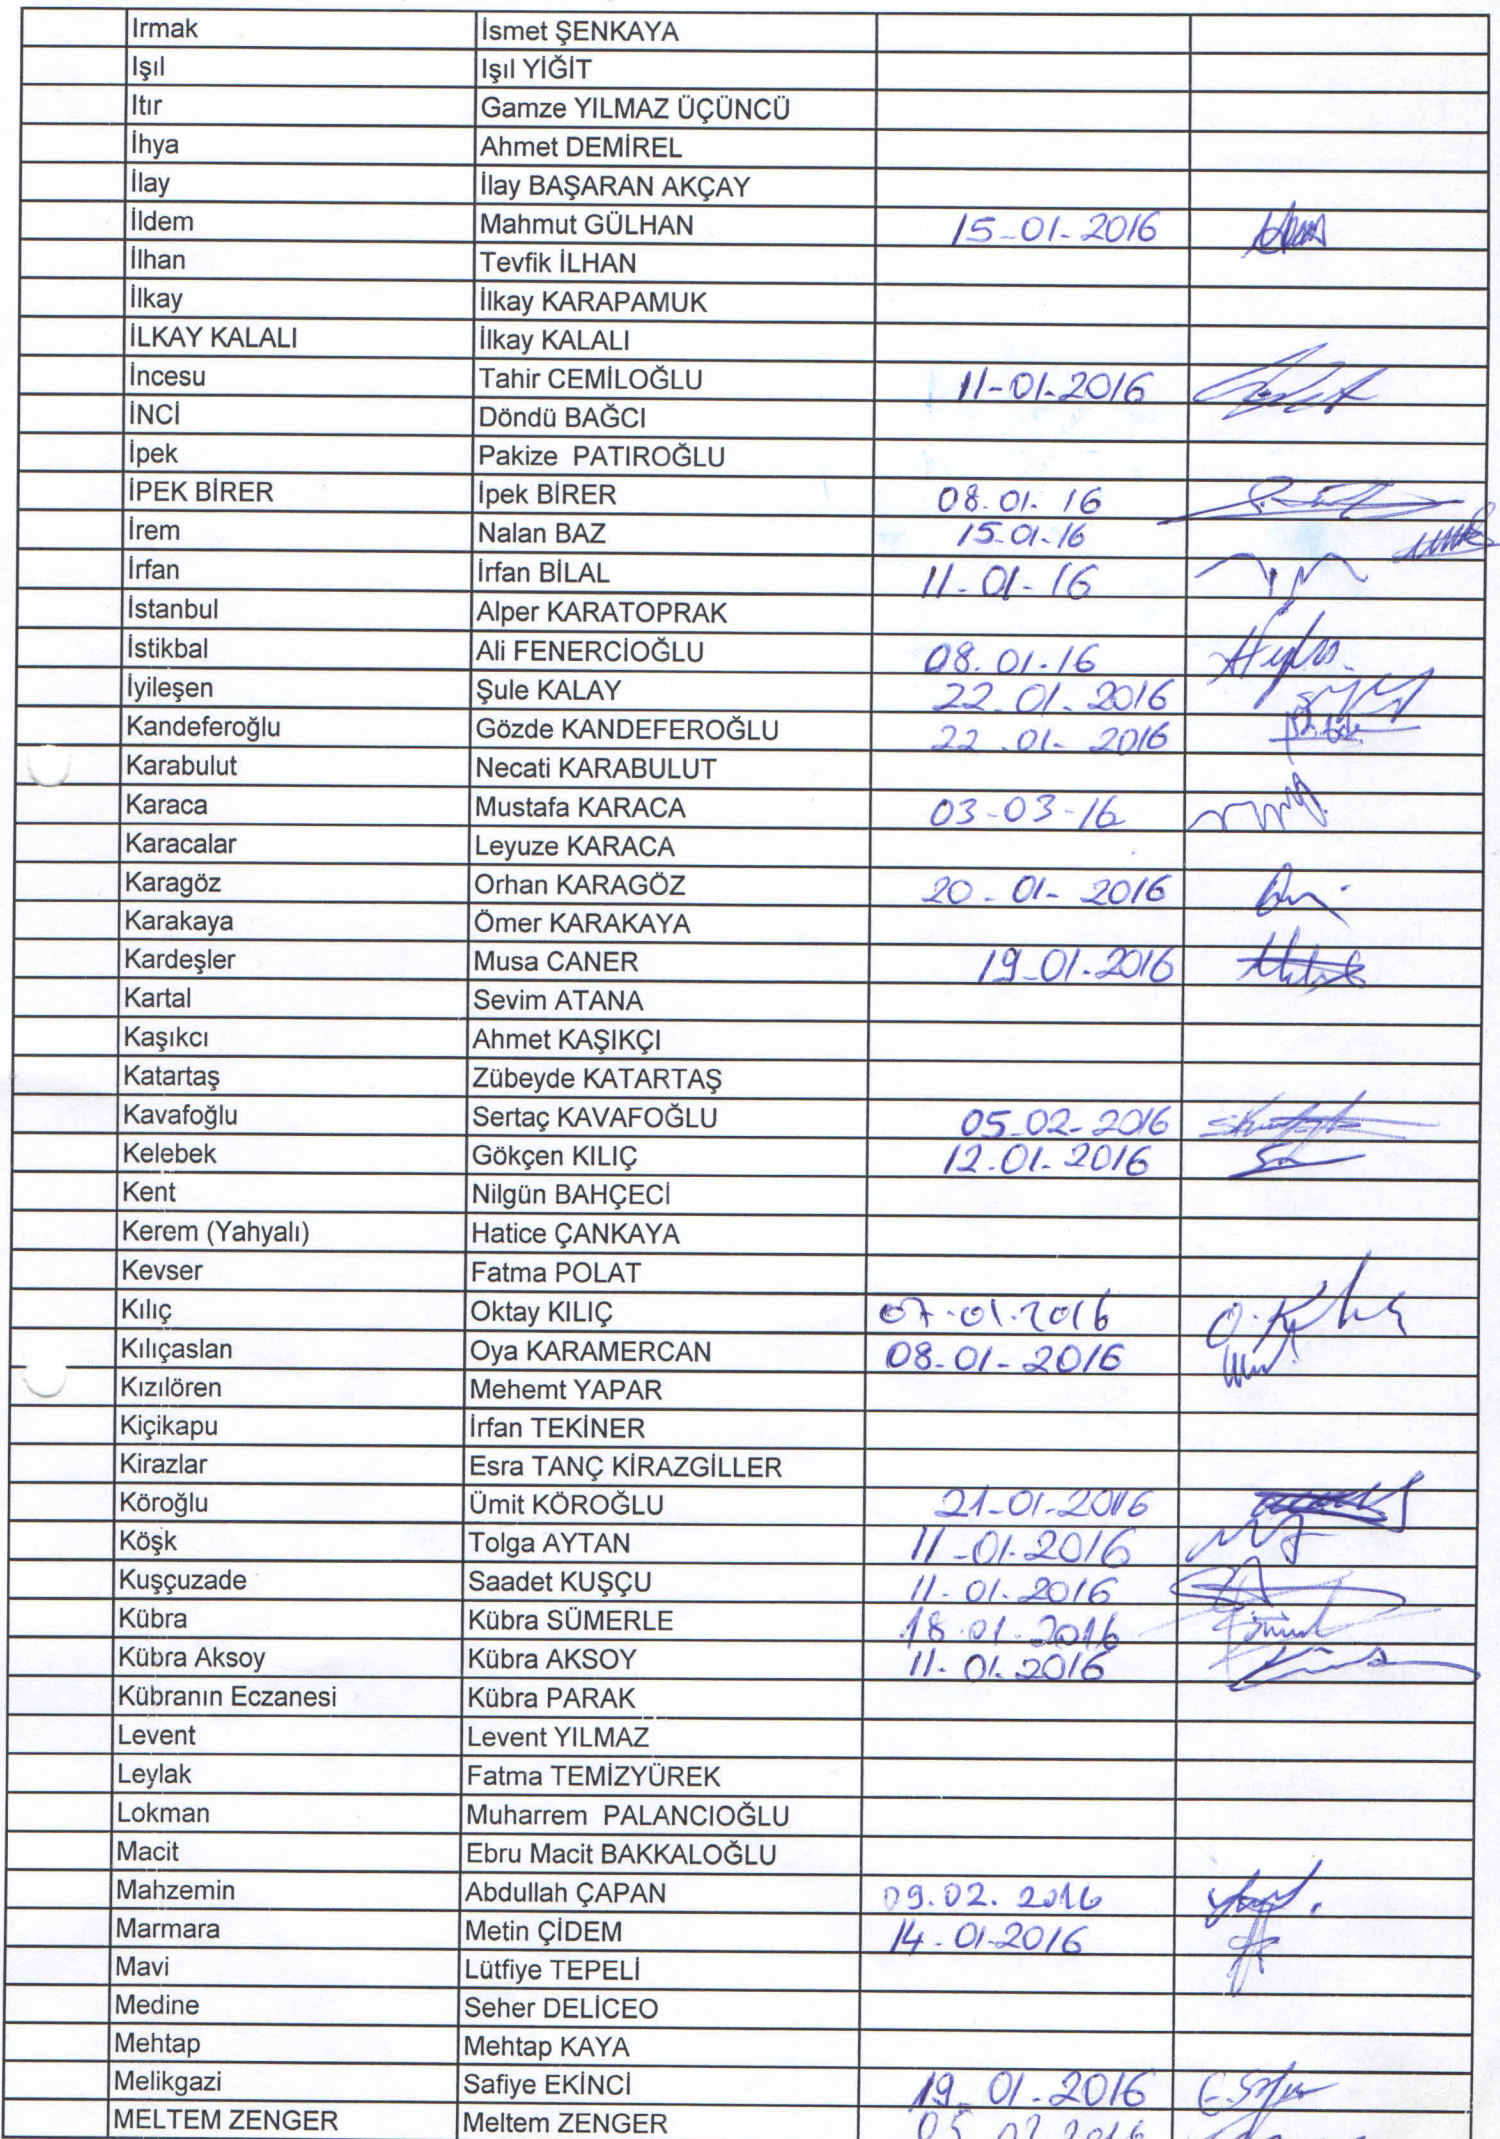 Irmak İsmet ŞENKAYA
Işıl Işıl YİĞİT
Itır Gamze YILMAZ ÜÇÜNCÜ
İhya Ahmet DEMİREL
İlay İlay BAŞARAN AKÇAY
İldem Mahmut GÜLHAN 15-01-2016
İlhan Tevfik İLHAN
İlkay İlkay KARAPAMUK
İLKAY KALALI İlkay KALALI
İncesu Tahir CEMİLOĞLU 11-01-2016
İNCİ Döndü BAĞCI
İpek Pakize PATIROĞLU
İPEK BİRER İpek BİRER 08.01.16
İrem Nalan BAZ 15-01-16
İrfan İrfan BİLAL 11-01-16
İstanbul Alper KARATOPRAK
İstikbal Ali FENERCİOĞLU 08.01.16
İyileşen Şule KALAY 22.01.2016
Kandeferoğlu Gözde KANDEFEROĞLU 22.01-2016
Karabulut Necati KARABULUT
Karaca Mustafa KARACA 03-03-16
Karacalar Leyuze KARACA
Karagöz Orhan KARAGÖZ 20-01-2016
Karakaya Ömer KARAKAYA
Kardeşler Musa CANER 19-01-2016
Kartal Sevim ATANA
Kaşıkcı Ahmet KAŞIKÇI
Katartaş Zübeyde KATARTAŞ
Kavafoğlu Sertaç KAVAFOĞLU 05-02-2016
Kelebek Gökçen KILIÇ 12.01.2016
Kent Nilgün BAHÇECİ
Kerem (Yahyalı) Hatice ÇANKAYA
Kevser Fatma POLAT
Kılıç Oktay KILIÇ 07.01.2016
Kılıçaslan Oya KARAMERCAN 08-01-2016
Kızılören Mehemt YAPAR
Kiçikapu İrfan TEKİNER
Kirazlar Esra TANÇ KİRAZGİLLER
Köroğlu Ümit KÖROĞLU 21-01-2016
Köşk Tolga AYTAN 11-01-2016
Kuşçuzade Saadet KUŞÇU 11-01-2016
Kübra Kübra SÜMERLE 18.01.2016
Kübra Aksoy Kübra AKSOY 11-01.2016
Kübranın Eczanesi Kübra PARAK
Levent Levent YILMAZ
Leylak Fatma TEMİZYÜREK
Lokman Muharrem PALANCIOĞLU
Macit Ebru Macit BAKKALOĞLU
Mahzemin Abdullah ÇAPAN 09.02.2016
Marmara Metin ÇİDEM 14-01-2016
Mavi Lütfiye TEPELİ
Medine Seher DELİCEO
Mehtap Mehtap KAYA
Melikgazi Safiye EKİNCİ 19-01-2016
MELTEM ZENGER Meltem ZENGER